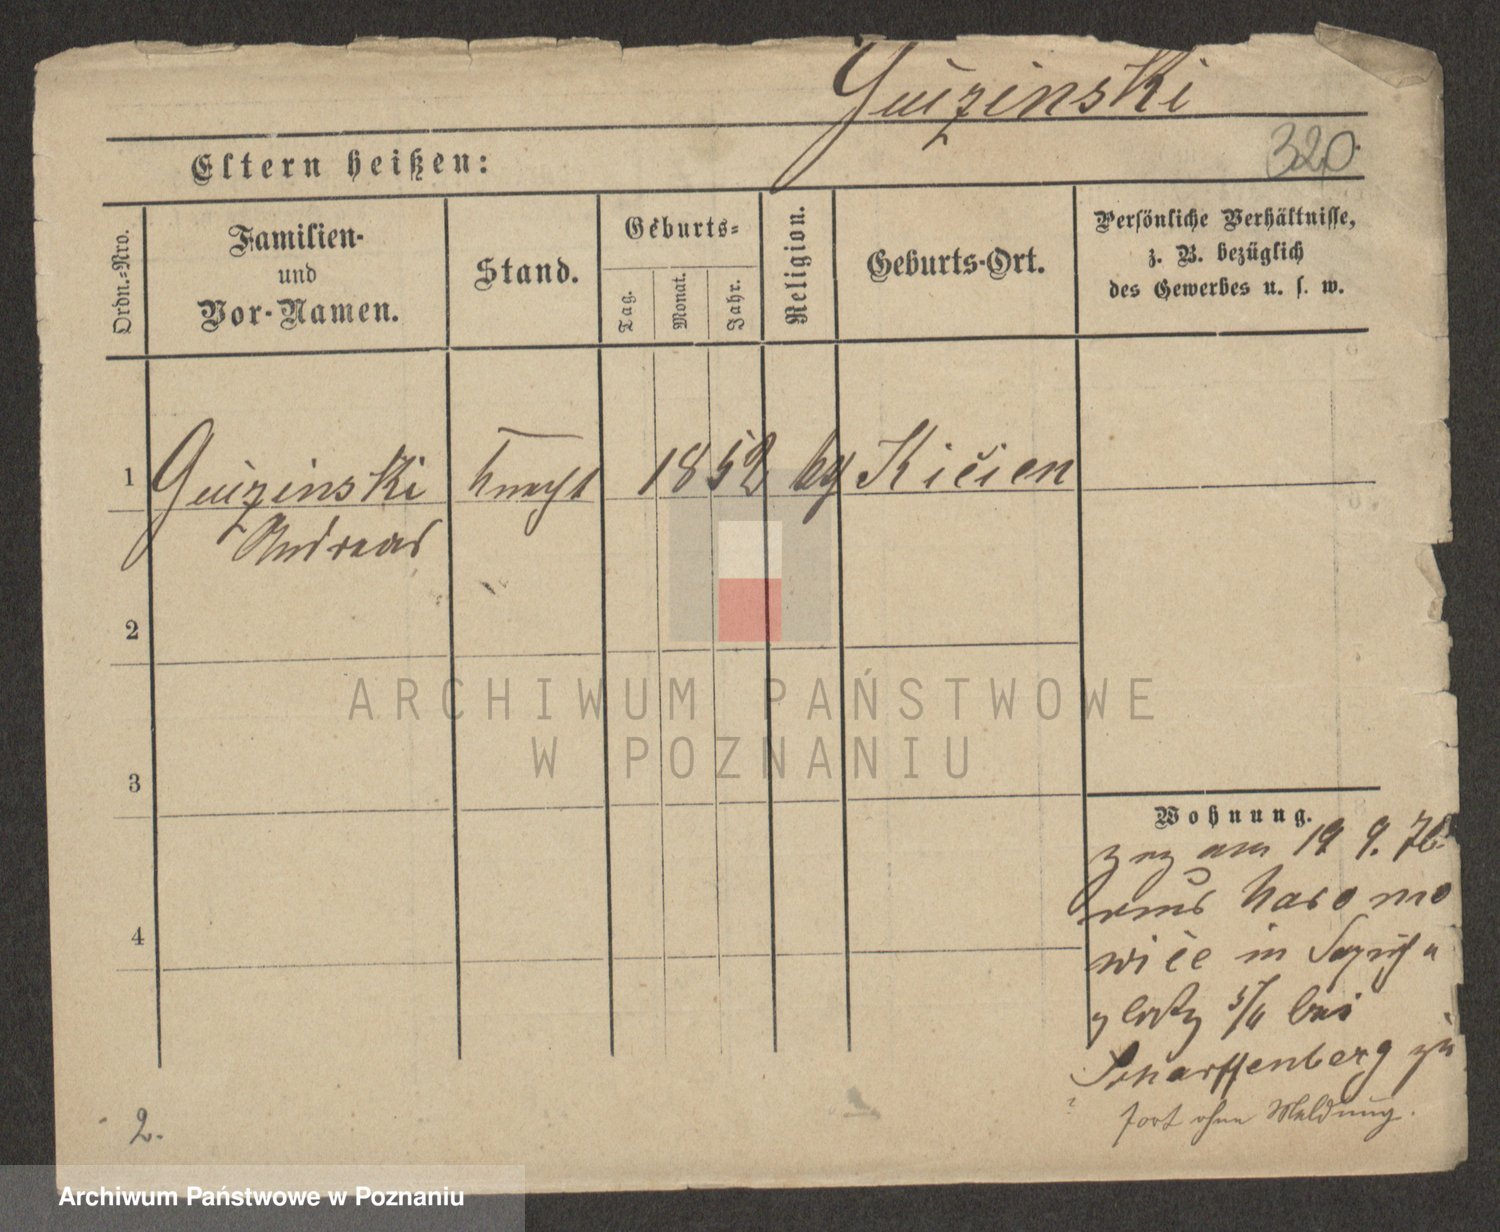 Guizinski
320.
Eltern heißen:
Ordn.=Nro.
Familien-
und
Vor-Namen.
Stand.
Geburts=
Tag.
Monat.
Jahr.
Religion.
Geburts-Ort.
Persönliche Verhältnisse,
z. B. bezüglich
des Gewerbes u. s. w.
1 Guizinski Knecht 1852 kg Kičien
Andreas
2
3
4
ARCHIWUM PAŃSTWOWE
W POZNANIU
Wohnung.
zog am 19 9. 76
wiče in
5/6 bei
Scharffenberg zu
fort ohne Meldung.
2.
Archiwum Państwowe w Poznaniu